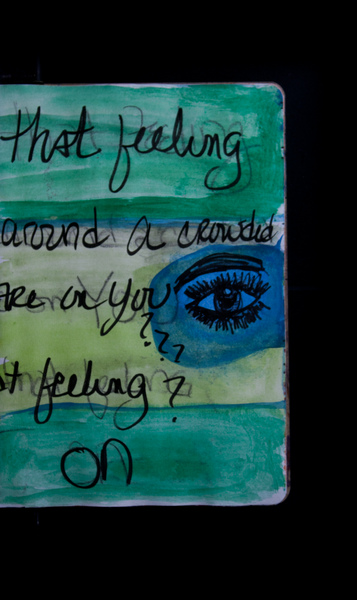 that feeling
around a crowdid
are on you
???
st feeling?
on